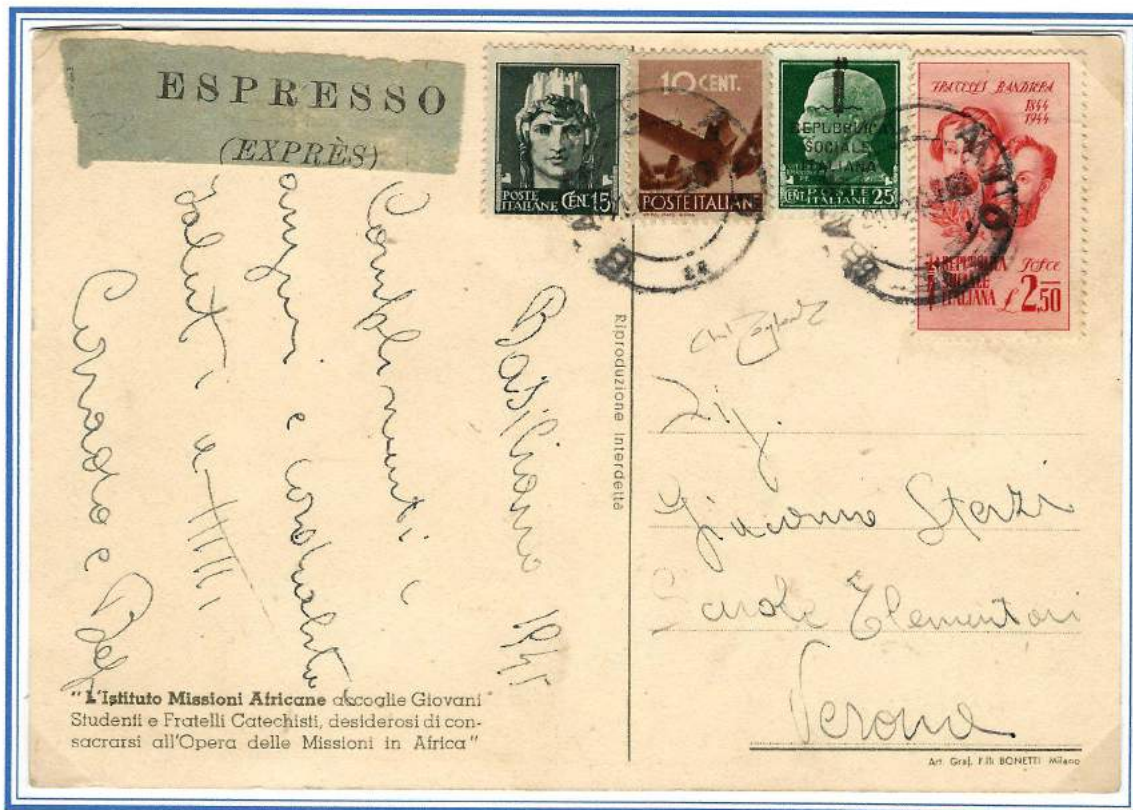 ESPRESSO
(EXPRÈS)
POSTE ITALIANE CEN. 15
10 CENT.
POSTE ITALIANE
REPUBBLICA
SOCIALE
ITALIANA
CENT. POSTE ITALIANE 25
FRATELLI BANDIERA
1844
1944
REPUBBLICA
SOCIALE
ITALIANA
L 2,50
Basiliano 1945
Complimenti
auguri e cordialità
saluti a tutti
Corrado e
Riproduzione Interdetta
Sig.
Giacomo Sterzi
Scuole Elementari
Verona
"L'Istituto Missioni Africane accoglie Giovani
Studenti e Fratelli Catechisti, desiderosi di con-
sacrarsi all'Opera delle Missioni in Africa"
Art. Graf. F.lli BONETTI Milano